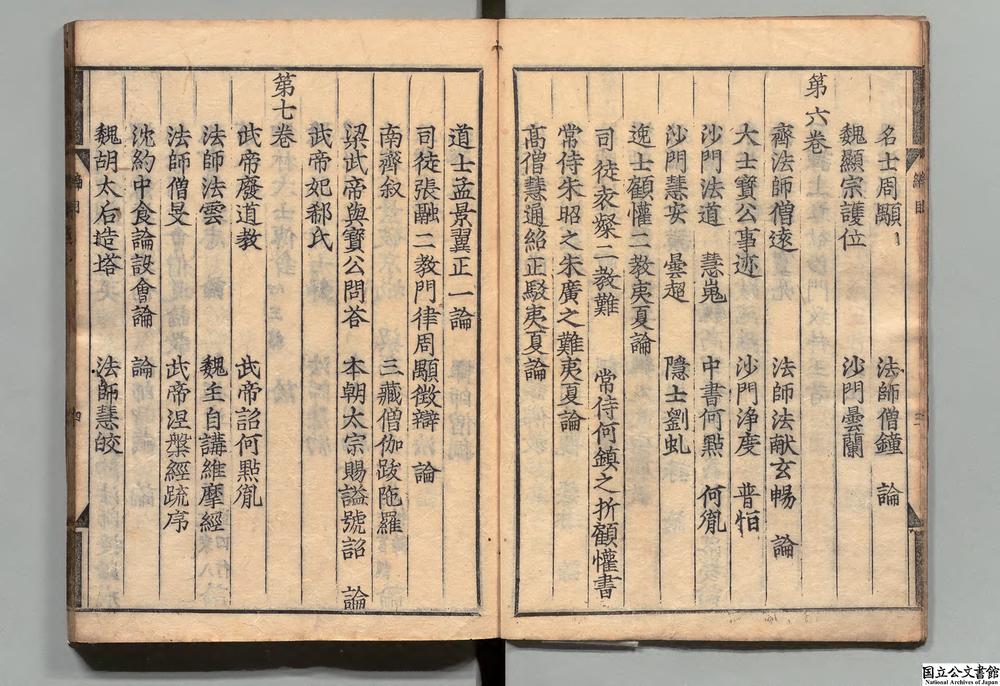 名士周顒 法師僧鐘 論
魏顯宗護位 沙門曇蘭
第六卷
齊法師僧遠 法師法献玄暢 論
大士寶公事迹 沙門浄度 普怕
沙門法道 慧嵬 中書何點 何胤
沙門慧安 曇超 隱士劉虬
逸士顧懽二教夷夏論
司徒袁粲二教難 常侍何鎮之折顧懽書
常侍朱昭之朱廣之難夷夏論
髙僧慧通紹正駁夷夏論
道士孟景翼正一論
司徒張融二教門律周顒徴辯 論
南齊叙 三藏僧伽跋陁羅
梁武帝與寶公問荅 本朝太宗賜謚號詔 論
武帝妃郗氏
第七卷
武帝廢道教 武帝詔何點胤
法師法雲 魏主自講維摩經
法師僧旻 武帝涅槃經疏序
沈約中食論設會論 論
魏胡太后造塔 法師慧皎
編目
四
国立公文書館
National Archives of Japan